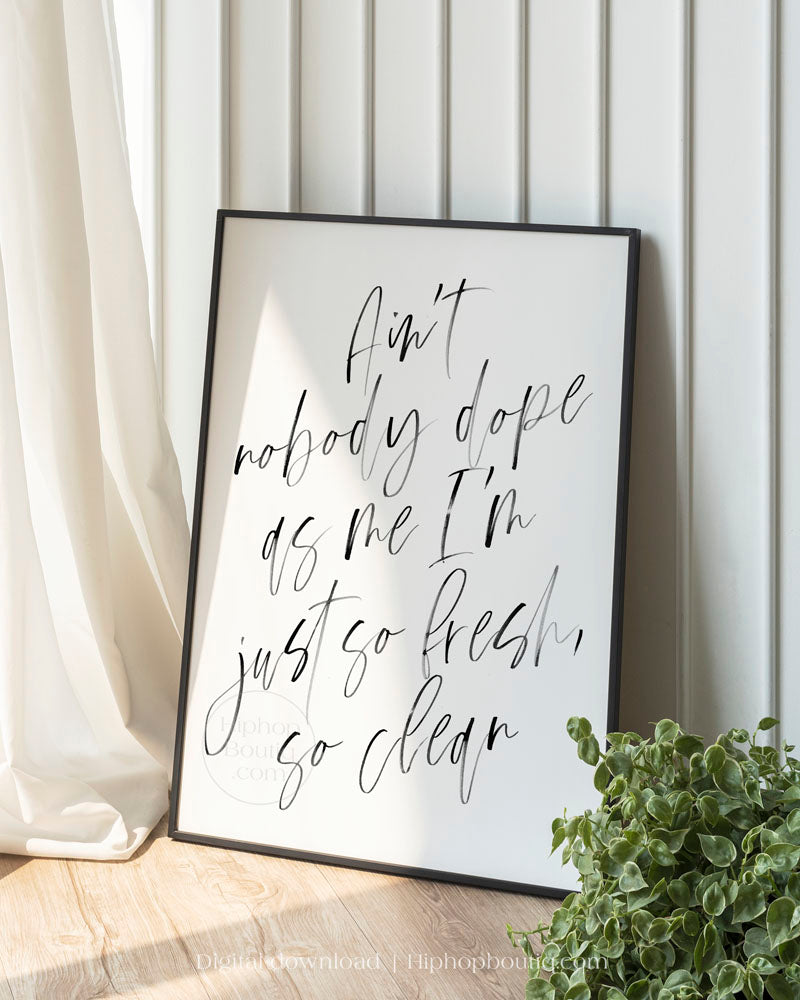 Ain't
nobody dope
as me I'm
just so fresh,
so clean
Hiphop
Boutiq
.com
Digital download | Hiphopboutiq.com